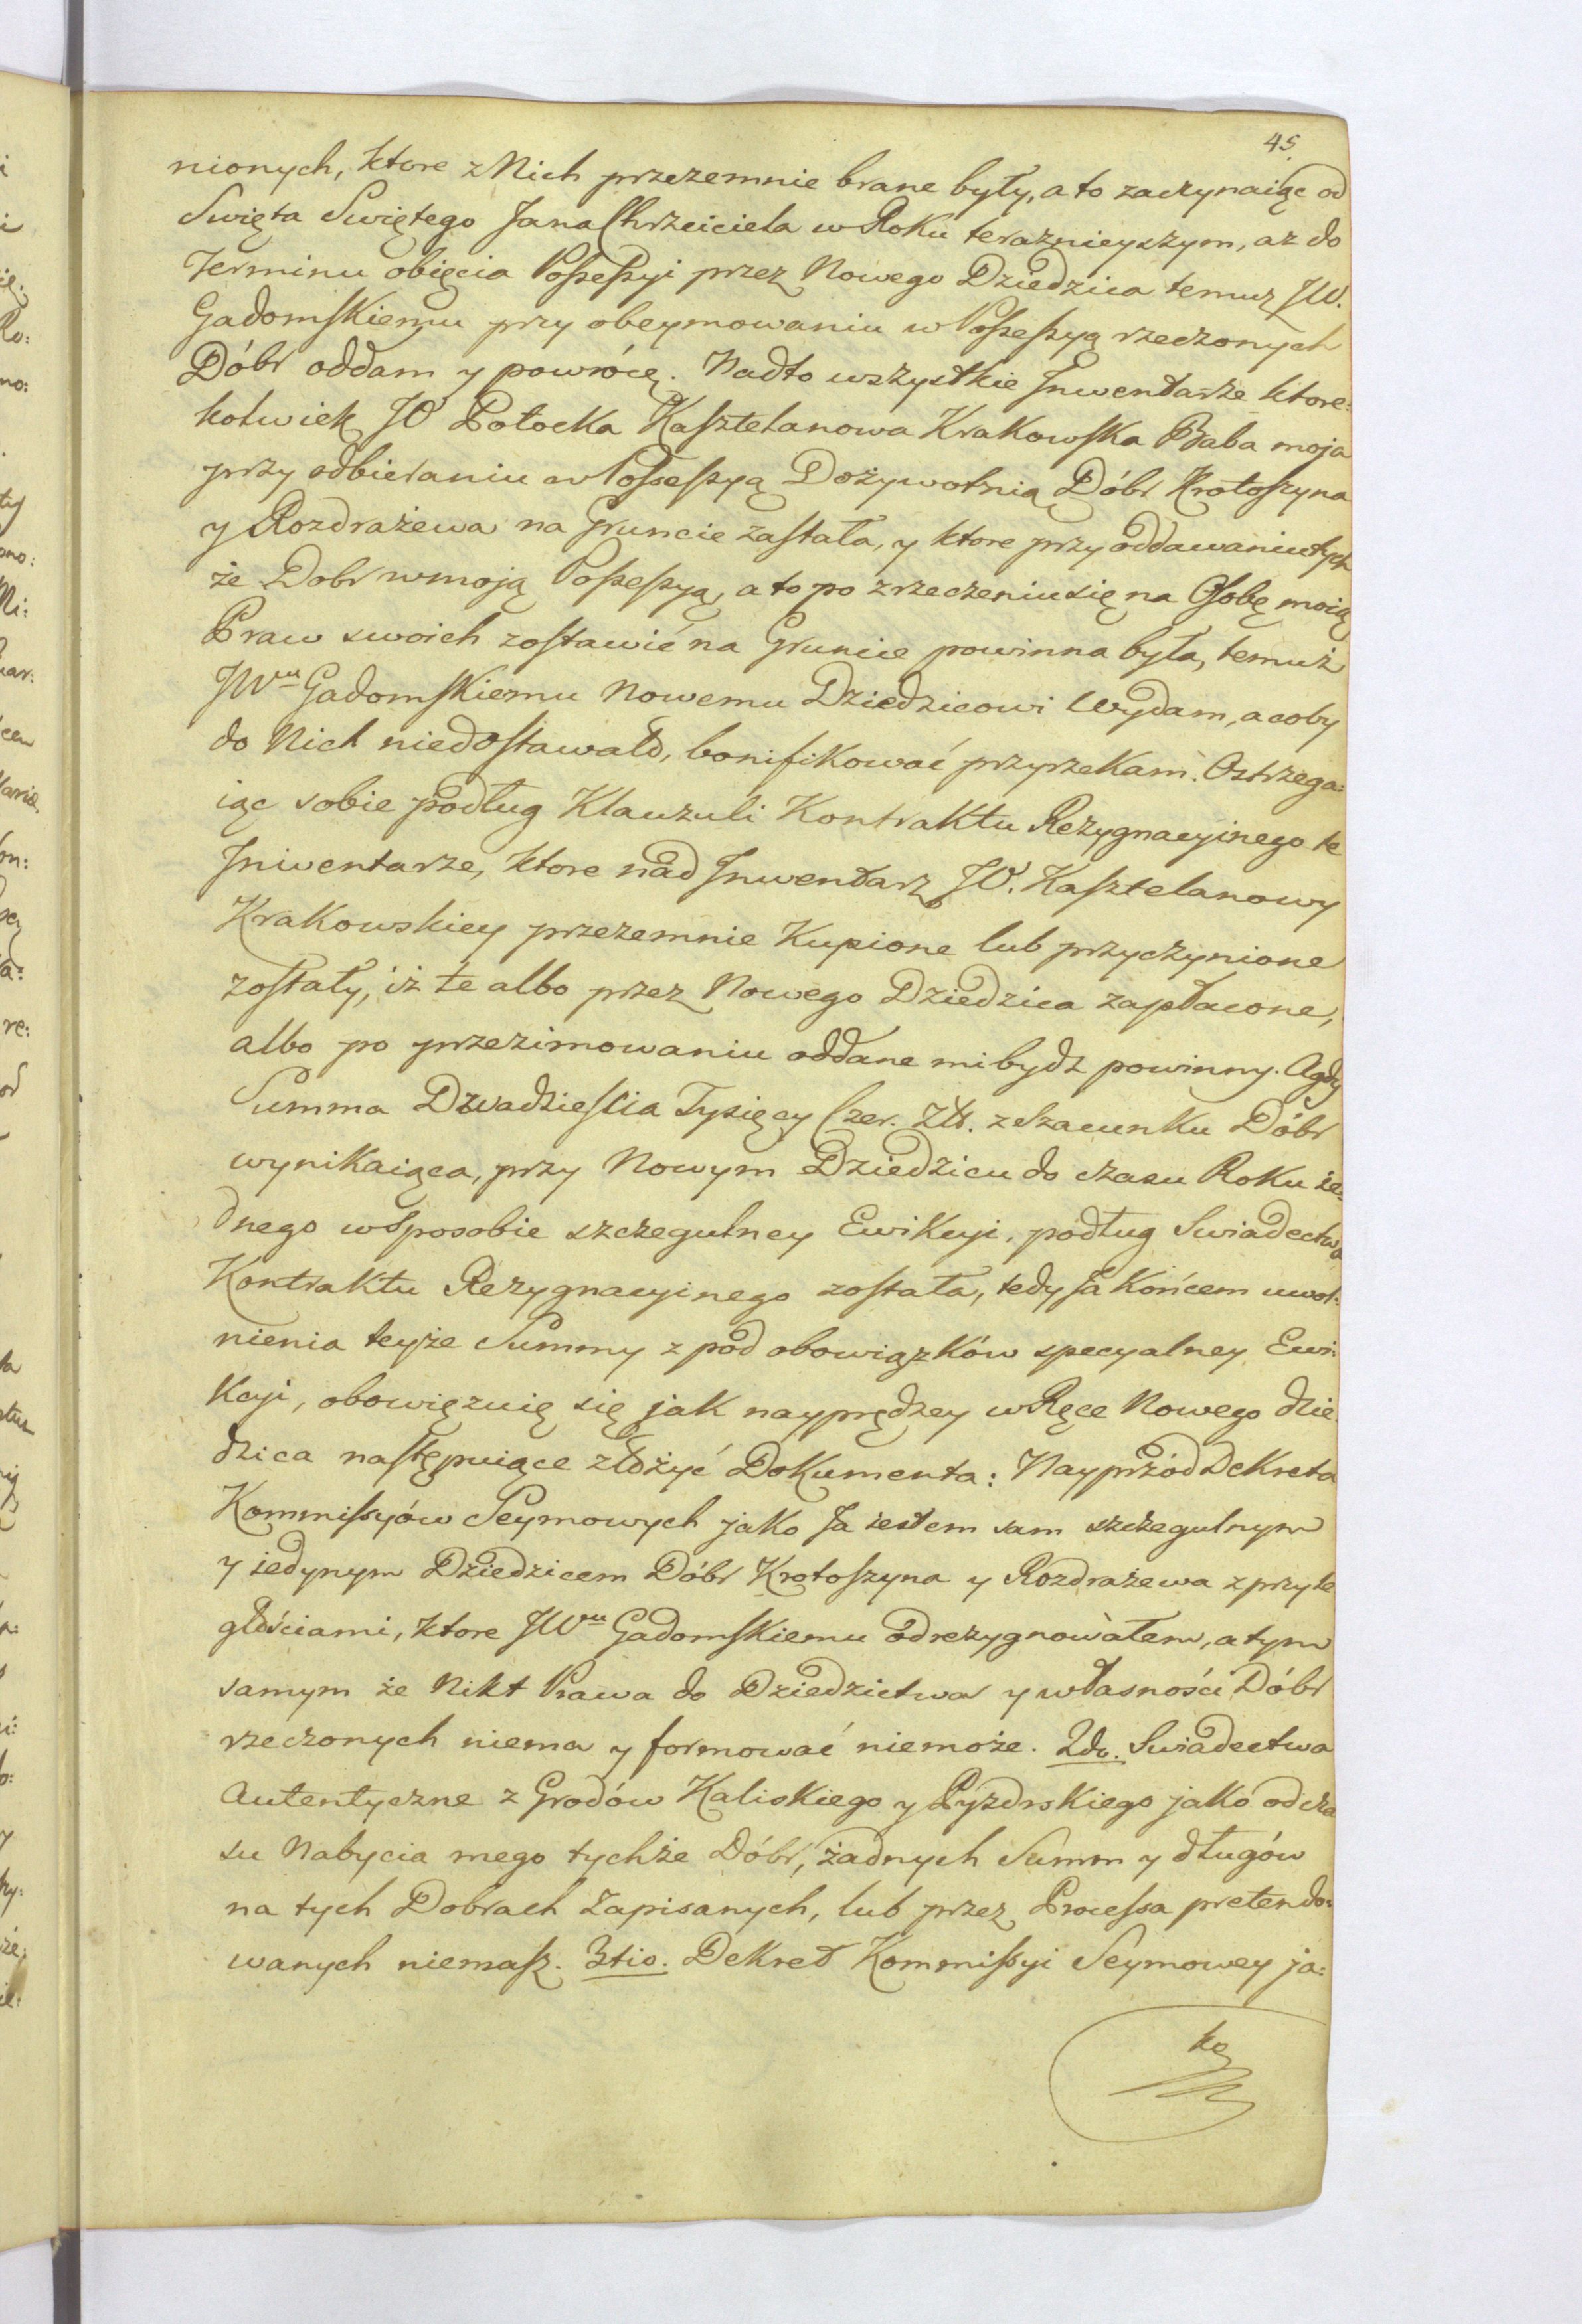 45.
nionych, ktore z Nich przezemnie brane były, a to zaczynaiąc od
Swięta Swiętego Jana Chrzciciela w Roku teraznieyszym, az do
Terminu obięcia Possessyi przez Nowego Dziedzica temuz JW.
Gadomskiemu przy obeymowaniu w Possessyą rzeczonych
Dóbr oddam y powrócę. Nadto wszystkie Inwentarze ktore=
kolwiek JO Potocka Kasztelanowa Krakowska Baba moja
przy odbieraniu w Possessyą Dożywotnią Dóbr Krotoszyna
y Rozdrażewa na Gruncie zastała, y ktore przy oddawaniu tych
że Dobr w moją Possessyą, a to po zrzeczeniu się na Osobę moią
Praw swoich zostawić na Gruncie powinna była, temuż
JWu Gadomskiemu Nowemu Dziedzicowi Wydam, a coby
do Nich niedostawało, bonifikować przyrzekam. Ostrzega=
iąc sobie podług Klauzuli Kontraktu Rezygnacyinego te
Inwentarze, ktore nad Inwentarz JO. Kasztelanowy
Krakowskiey przezemnie Kupione lub przyczynione
zostały, iż te albo przez Nowego Dziedzica zapłacone,
albo po przezimowaniu oddane mi bydz powinny. A gdy
Summa Dwadziescia Tysięcy Czer. Zło. z Szacunku Dóbr
wynikaiąca, przy Nowym Dziedzicu do czasu Roku ie=
dnego w Sposobie szczegulney Ewikcyi, podług Swiadectwa
Kontraktu Rezygnacyinego została, tedy Ja końcem uwol=
nienia teyże Summy z pod obowiązków specyalney Ewi=
kcyi, obowięzuię się jak nayprędzey w Ręce Nowego dzie
dzica następuiące złożyć Dokumenta: Nayprzód Dekreta
Kommissyów Seymowych jako Ja iestem sam szczegulnym
y iedynym Dziedzicem Dóbr Krotoszyna y Rozdrażewa z przyle
głościami, ktore JWu Gadomskiemu odrezygnowałem, a tym
samym że Nikt Prawa do Dziedzictwa y własności Dóbr
rzeczonych niema y formować niemoże. 2do. Swiadectwa
Autentyczne z Grodów Kaliskiego y Pyzdrskiego jako od cza
su Nabycia mego tychże Dóbr, żadnych Summ y długów
na tych Dobrach Zapisanych, lub przez Processa pretendo=
wanych niemasz. 3tio. Dekret Kommissyi Seymowey ja=
ko